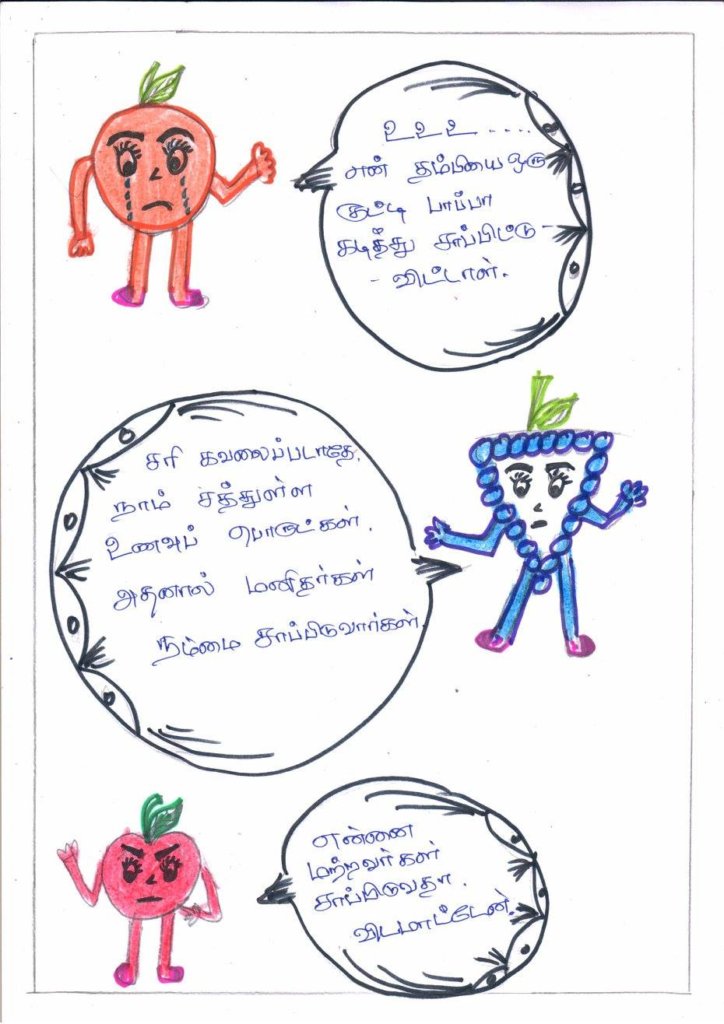 உ உ உ ....
என் தம்பியை ஒரு
குட்டி பாப்பா
கடித்து சாப்பிட்டு-
- விட்டாள்.
சரி கவலைப்படாதே.
நாம் சத்துள்ள
உணவுப் பொருட்கள்.
அதனால் மனிதர்கள்
நம்மை சாப்பிடுவார்கள்.
என்னை
மற்றவர்கள்
சாப்பிடுவதா.
விடமாட்டேன்.